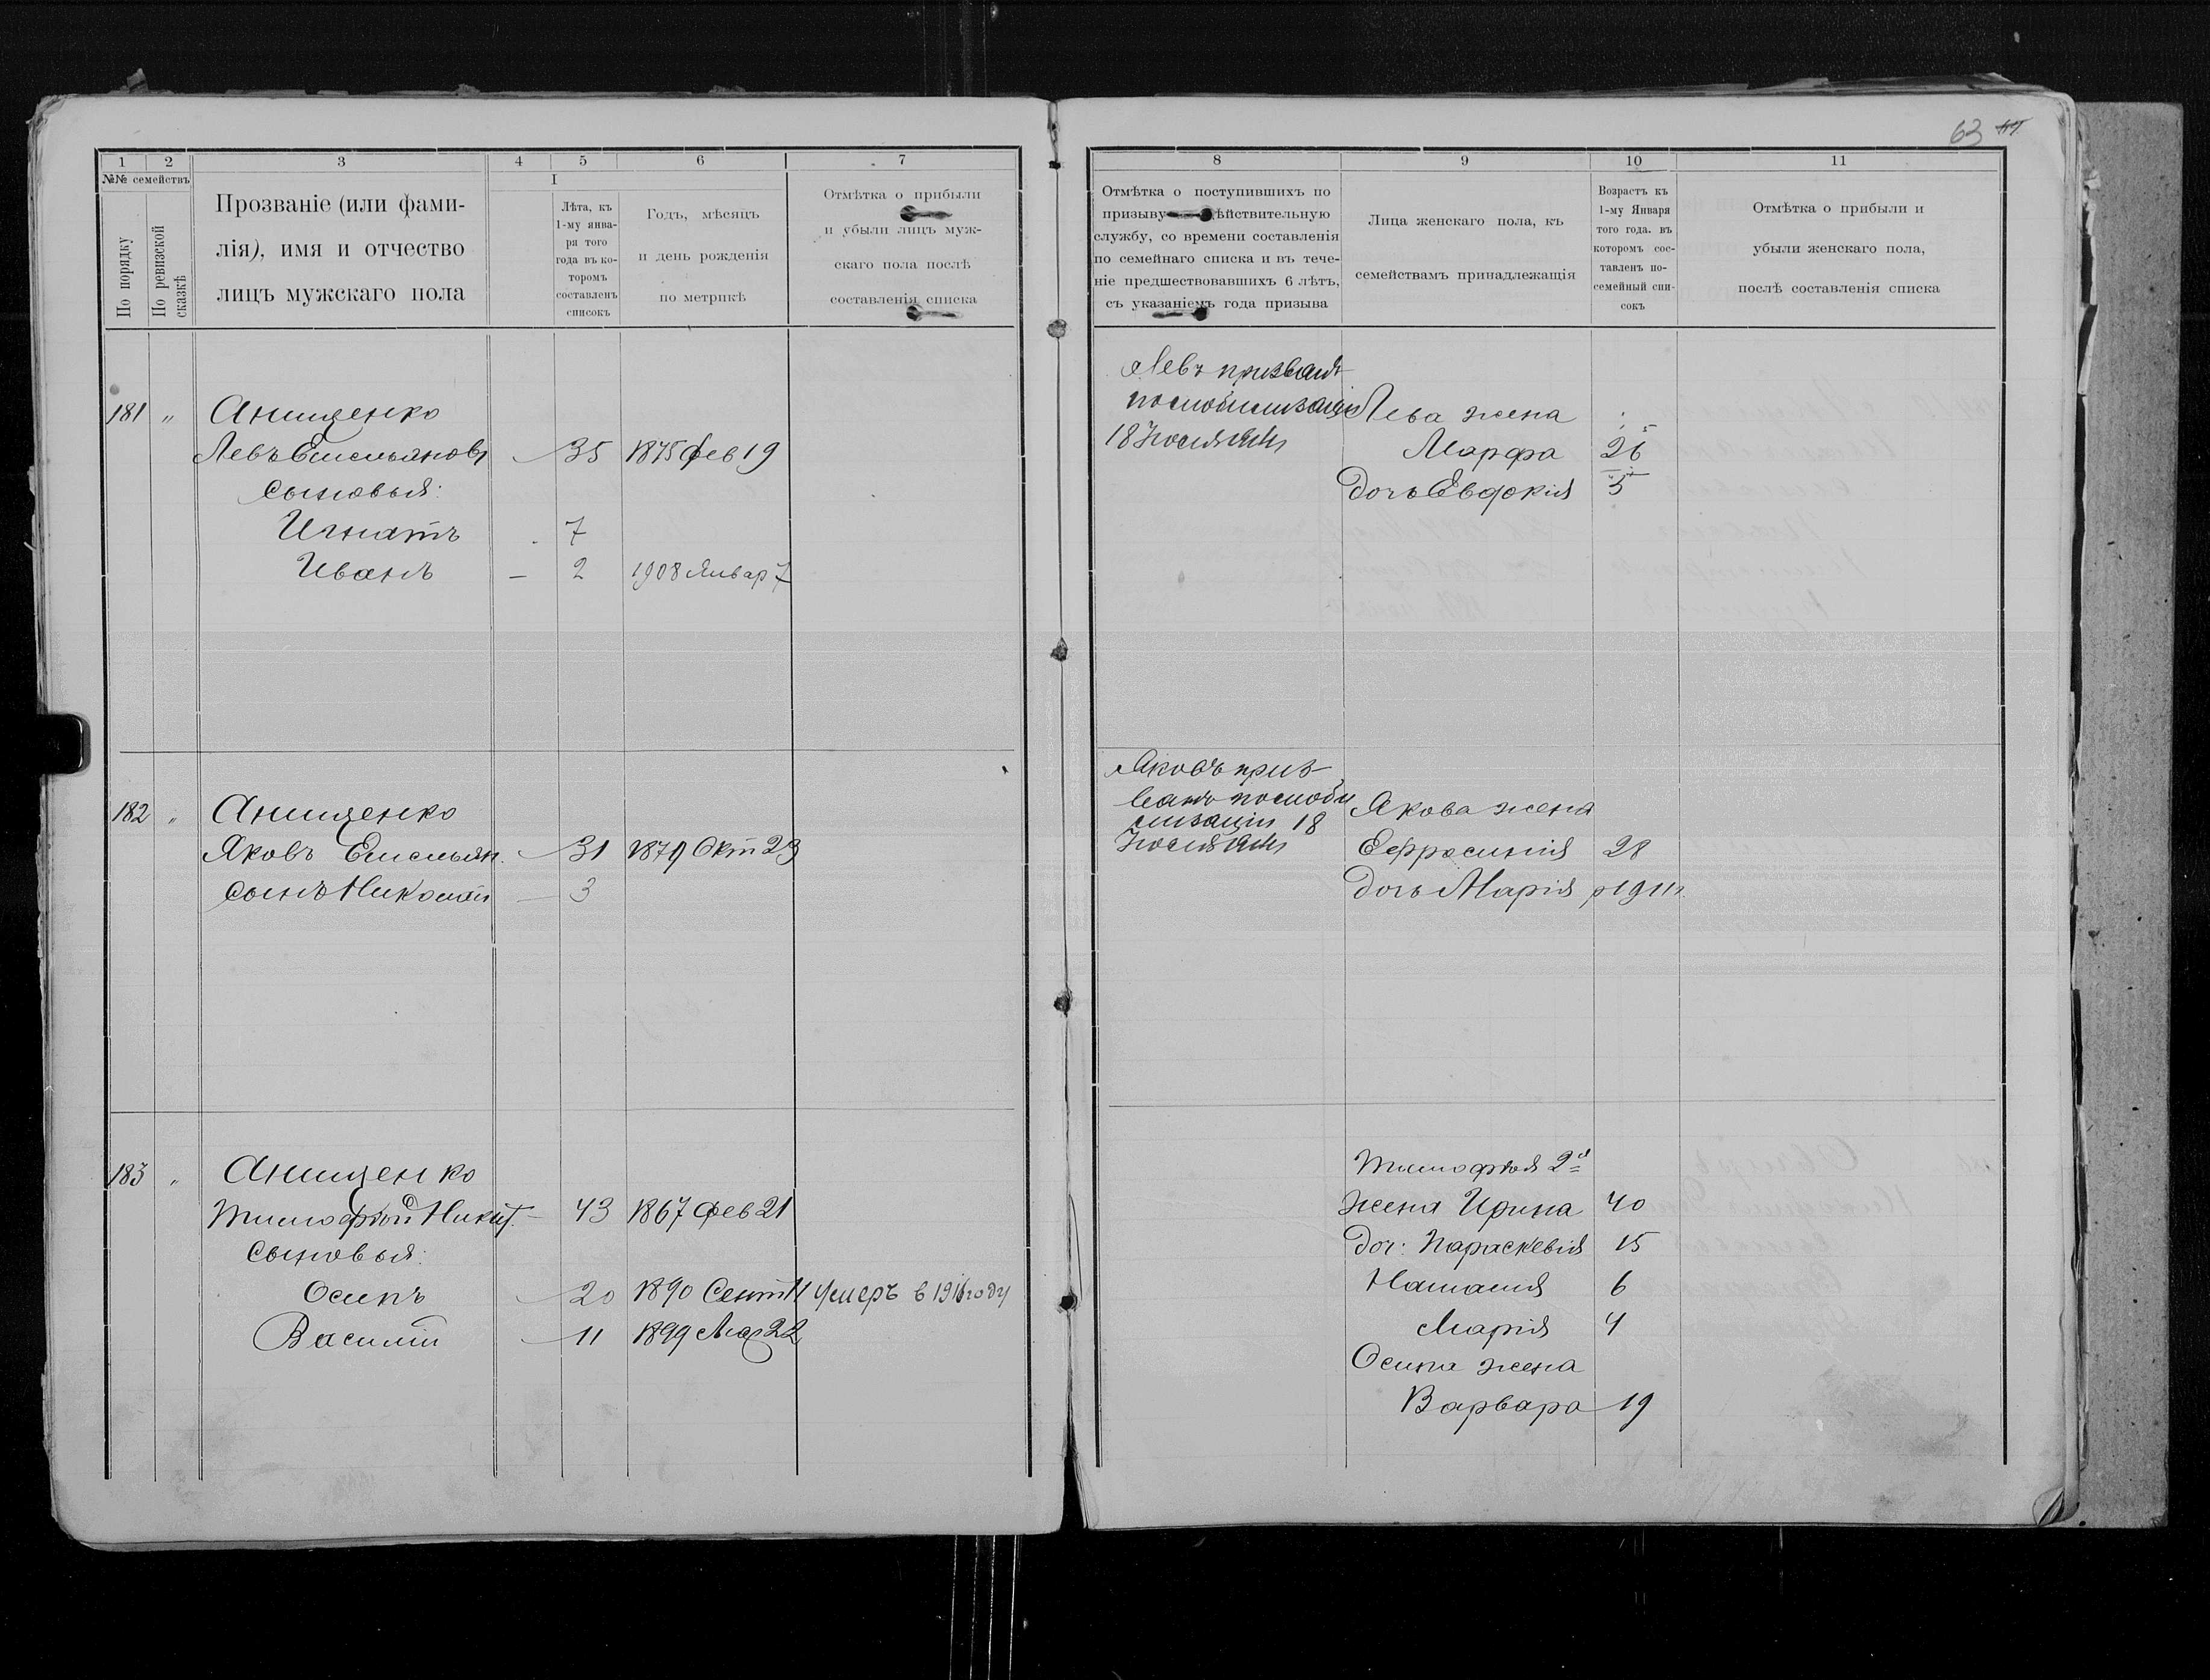 63
1 2 3 4 5 6 7
№№ семействъ
По порядку
По ревизской сказкѣ
Прозваніе (или фами-
лія), имя и отчество
лицъ мужскаго пола
I
Лѣта, къ
1-му янва-
ря того
года въ ко-
торомъ
составленъ
списокъ
Годъ, мѣсяцъ
и день рожденія
по метрикѣ
Отмѣтка о прибыли
и убыли лицъ муж-
скаго пола послѣ
составленія списка
181 " Анищенко
Левъ Емельяновъ 35 1875 Фев 19
сыновья:
Игнатъ 7
Иванъ — 2 1908 Январ 7
182 " Анищенко
Яковъ Емельян. 31 1879 Окт 23
сынъ Николай — 3
183 " Анищенко
Тимофѣй Никит. 43 1867 Фев 21
Сыновья:
Осипъ 20 1890 Сент 11 Умеръ в 1916 году
Василій 11 1899 Мар 22
8 9 10 11
Отмѣтка о поступившихъ по
призыву дѣйствительную
службу, со времени составленія
по семейнаго списка и въ тече-
ніе предшествовавшихъ 6 лѣтъ,
съ указаніемъ года призыва
Лица женскаго пола, къ
семействамъ принадлежащія
Возрастъ къ
1-му Января
того года. въ
которомъ сос-
тавленъ по-
семейный спи-
сокъ
Отмѣтка о прибыли и
убыли женскаго пола,
послѣ составленія списка
Левъ призванъ
по мобилизаціи
18 Іюля 1914
Льва жена
Марфа 26
дочь Евдокія 5
Яковъ приз-
ванъ по моби
лизаціи 18
Іюля 1914
Якова жена
Ефросинія 28
дочь Марія р 1911 г.
Тимофѣя 2я
жена Ирина 40
доч: Параскевія 15
Наталія 6
Марія 4
Осипа жена
Варвара 19